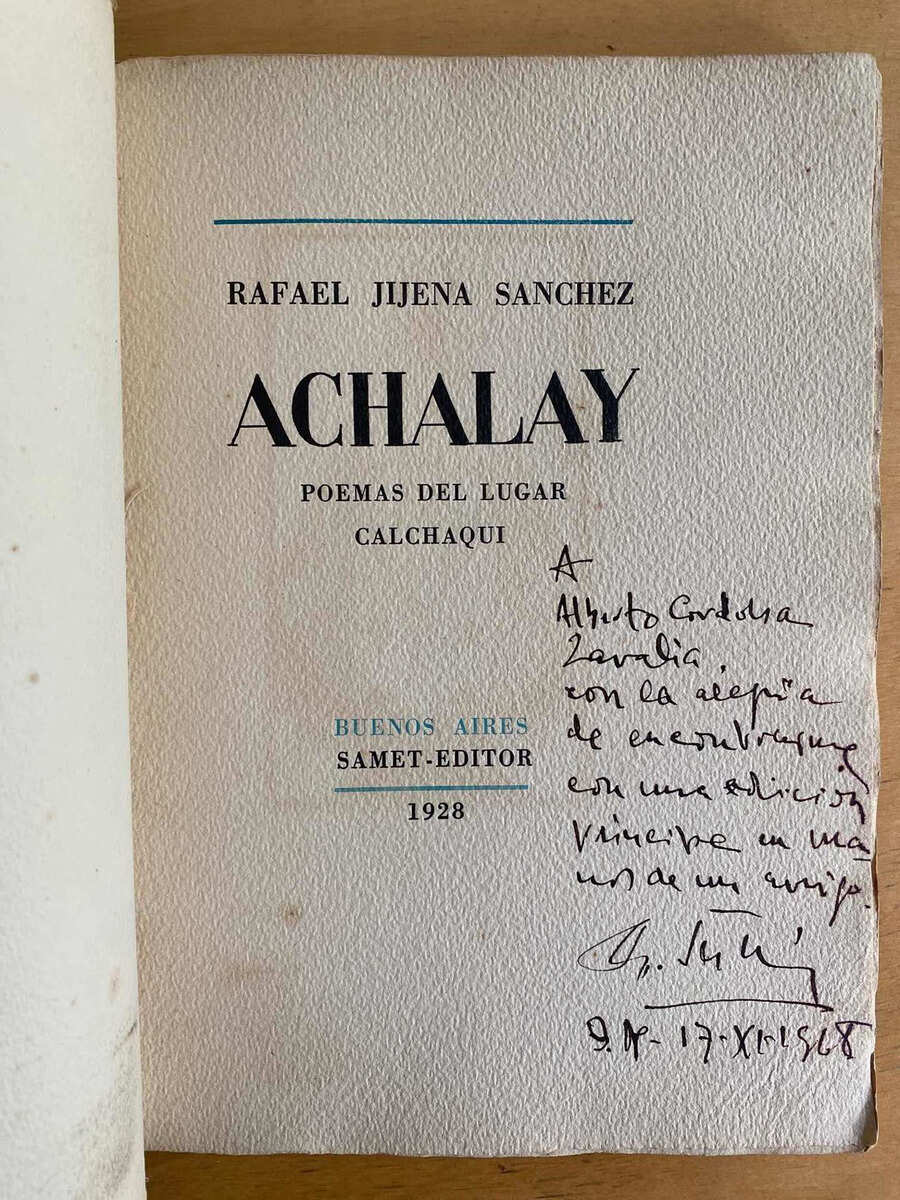 RAFAEL JIJENA SANCHEZ
ACHALAY
POEMAS DEL LUGAR
CALCHAQUI
BUENOS AIRES
SAMET-EDITOR
1928
A
Alberto Cordoba
Zavalia,
con la alegría
de encontrarme
con una edición
príncipe en ma
nos de un amigo.
17-XI-1968